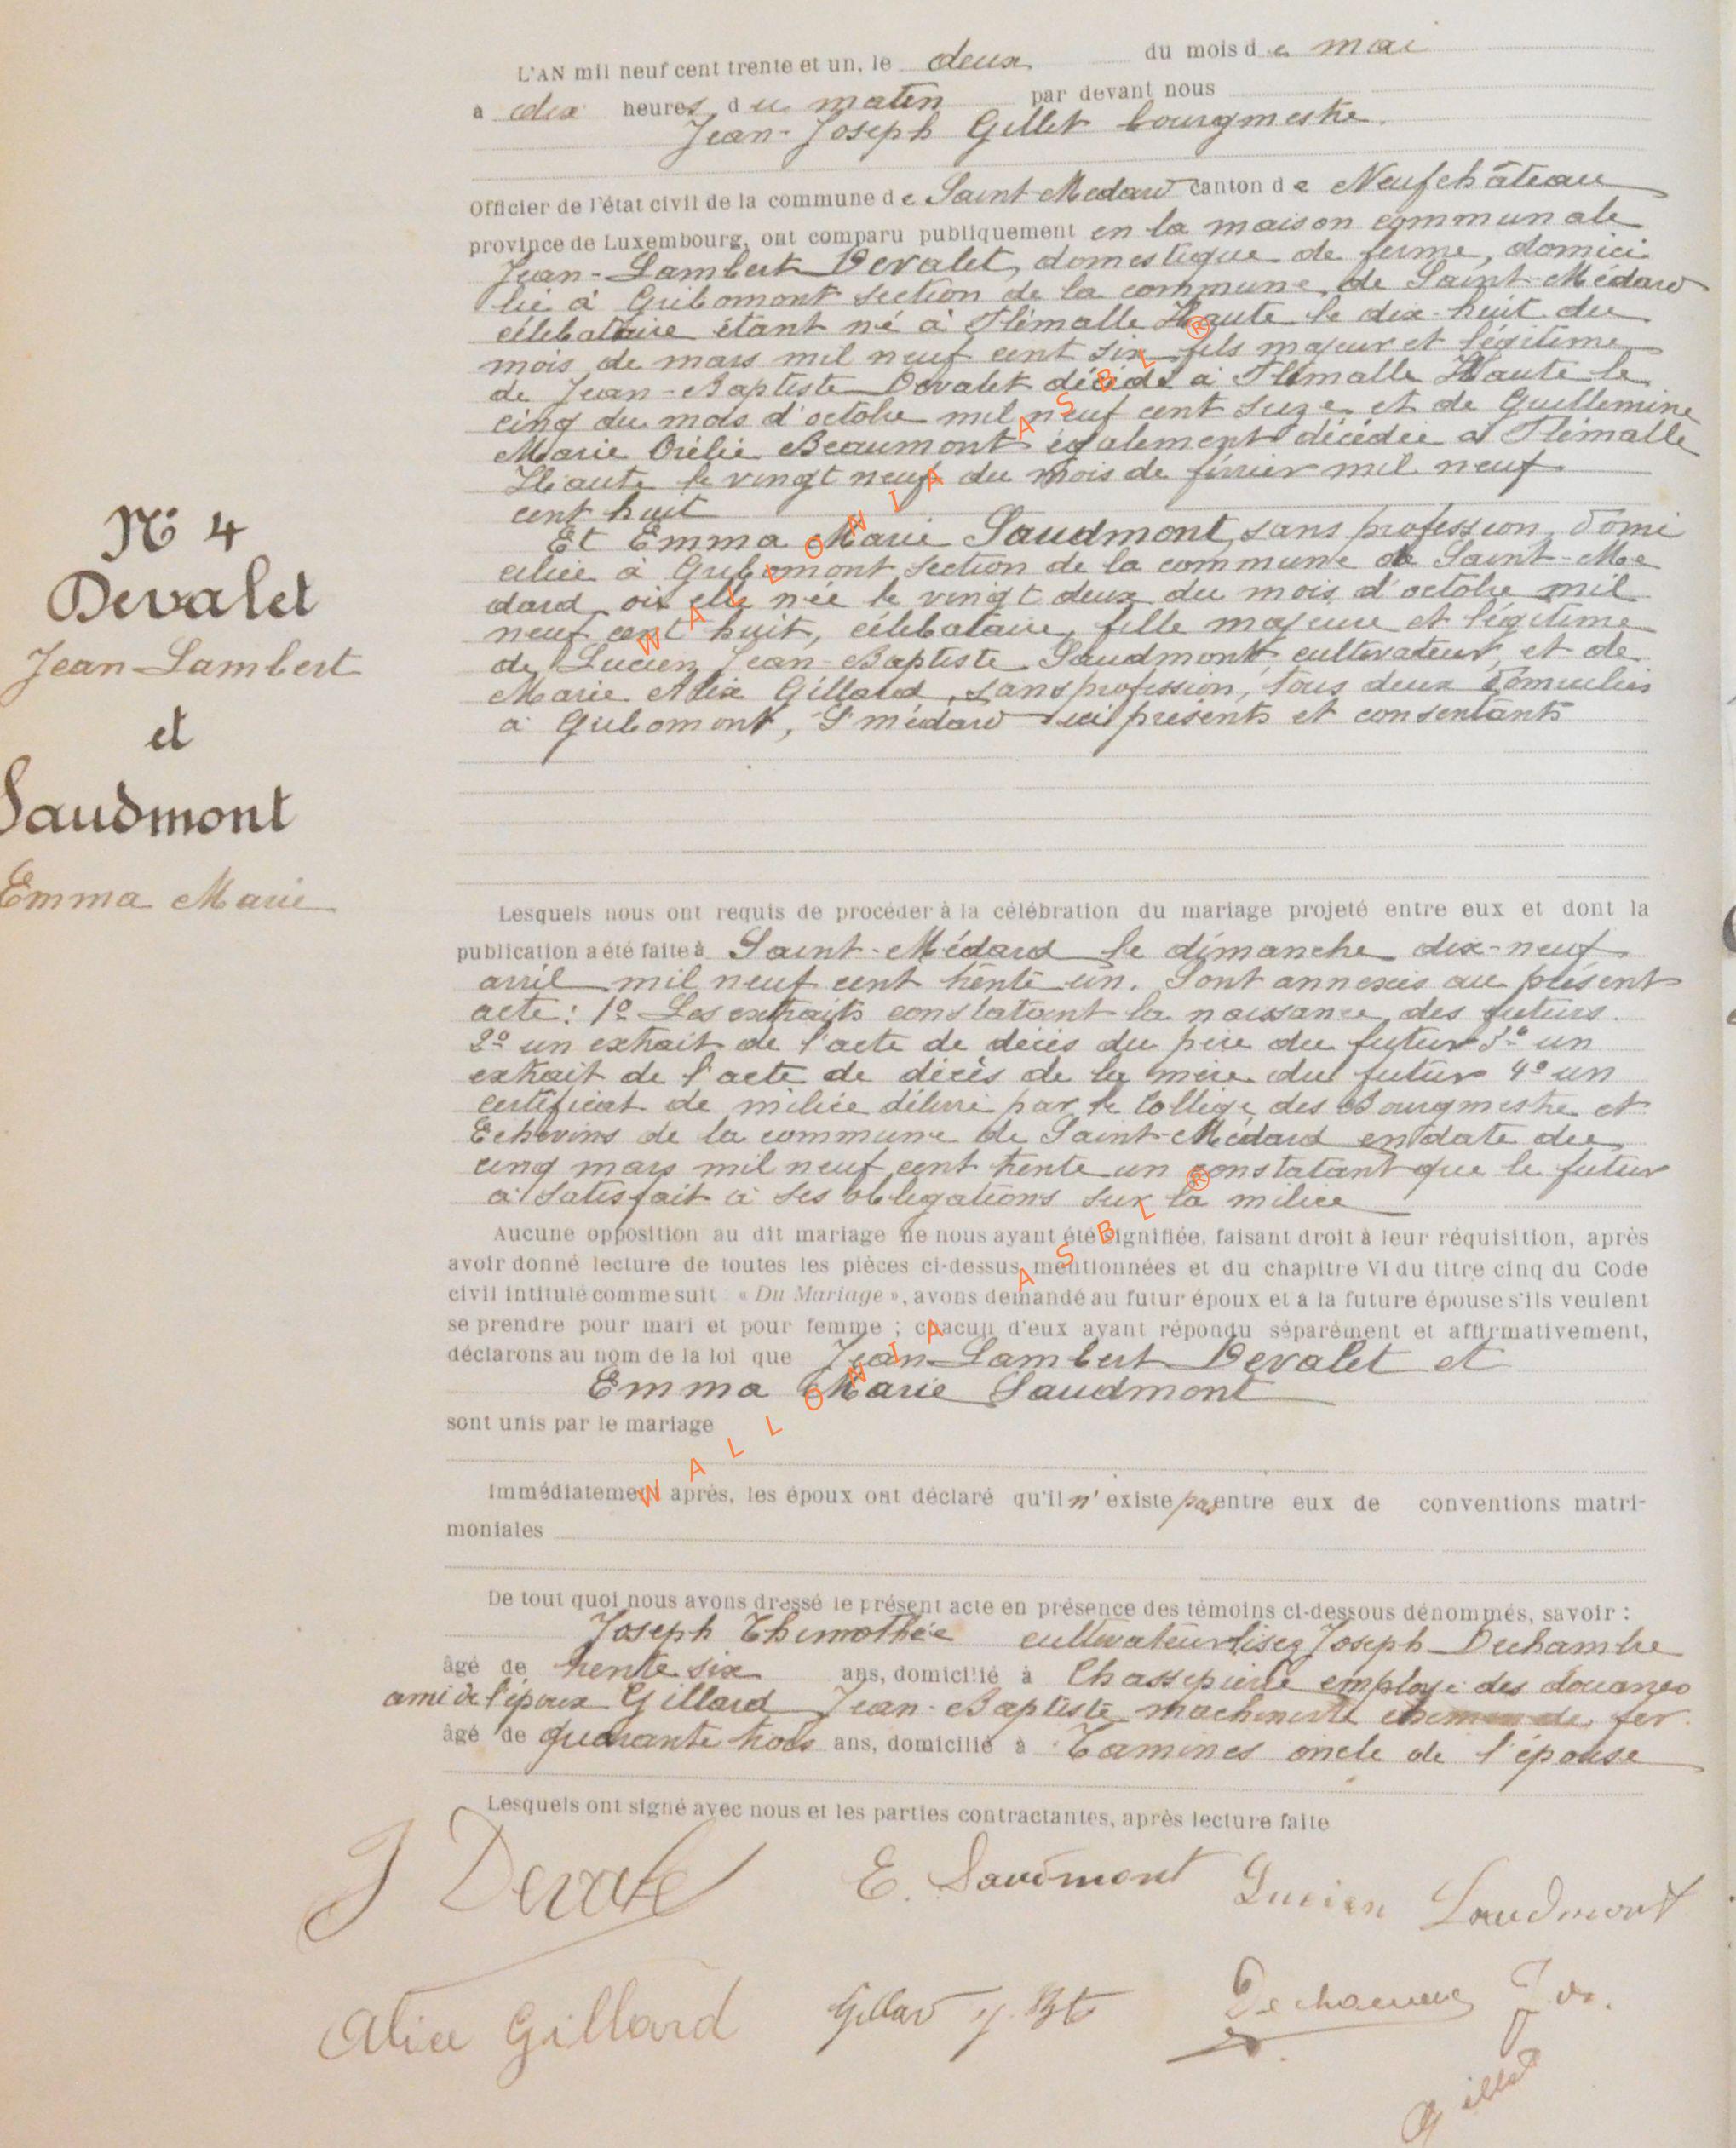 L'AN mil neuf cent trente et un, le deux du mois de mai
à dix heures du matin par devant nous
Jean-Joseph Gillet bourgmestre.
Officier de l'état civil de la commune de Saint-Médard canton de Neufchâteau
province de Luxembourg, ont comparu publiquement en la maison communale
Jean-Lambert Devalet, domestique de ferme, domici
lié à Gribomont section de la commune de Saint-Médard
célibataire étant né à Flémalle Haute le dix-huit du
mois de mars mil neuf cent six fils majeur et légitime
de Jean-Baptiste Devalet décédé à Flémalle Haute le
cinq du mois d'octobre mil neuf cent seize et de Guillemine
Marie Orélie Beaumont également décédée à Flémalle
Haute le vingt neuf du mois de février mil neuf
cent huit
Et Emma Marie Saudmont, sans profession, domi
ciliée à Gribomont section de la commune de Saint-Mé
dard où elle née le vingt deux du mois d'octobre mil
neuf cent huit, célibataire, fille majeure et légitime
de Lucien Jean-Baptiste Saudmont cultivateur, et de
Marie Alix Gillard, sans profession, tous deux domiciliés
à Gribomont, St médard ici présents et consentants
N° 4
Devalet
Jean-Lambert
et
Saudmont
Emma Marie
Lesquels nous ont requis de procéder à la célébration du mariage projeté entre eux et dont la
publication a été faite à Saint-Médard le dimanche dix-neuf
avril mil neuf cent trente un. Sont annexés au présent
acte : 1° Les extraits constatant la naissance des futurs.
2° un extrait de l'acte de décès du père du futur 3° un
extrait de l'acte de décès de la mère du futur 4° un
certificat de milice délivré par le Collège des Bourgmestre et
Echevins de la commune de Saint-Médard en date du
cinq mars mil neuf cent trente un constatant que le futur
a satisfait à ses obligations sur la milice
Aucune opposition au dit mariage ne nous ayant été signifiée, faisant droit à leur réquisition, après
avoir donné lecture de toutes les pièces ci-dessus mentionnées et du chapitre VI du titre cinq du Code
civil intitulé comme suit « Du Mariage », avons demandé au futur époux et à la future épouse s'ils veulent
se prendre pour mari et pour femme ; chacun d'eux ayant répondu séparément et affirmativement,
déclarons au nom de la loi que Jean-Lambert Devalet et
Emma Marie Saudmont
sont unis par le mariage
Immédiatement après, les époux ont déclaré qu'il n'existe pas entre eux de conventions matri-
moniales
De tout quoi nous avons dressé le présent acte en présence des témoins ci-dessous dénommés, savoir :
Joseph Thimothée cultivateur lisez Joseph Dechambre
âgé de trente six ans, domicilié à Chassepierre employé des douanes
ami de l'époux Gillard Jean-Baptiste machiniste chemin de fer
âgé de quarante trois ans, domicilié à Tamines oncle de l'épouse
Lesquels ont signé avec nous et les parties contractantes, après lecture faite
J Devalet E. Saudmont Lucien Saudmont
Alice Gillard Gillard J. Bte Dechambre Jos.
Gillet
WALLONIA ASBL ®
WALLONIA ASBL ®